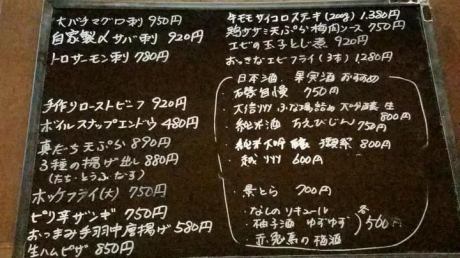 大バチマグロ刺 950円
自家製〆サバ刺 920円
トロサーモン刺 780円
手作りローストビーフ 920円
ボイルスナップエンドウ 480円
真だち天ぷら 890円
3種の揚げ出し 880円
(たち・とうふ・なす)
ホッケフライ(大) 750円
ピリ辛ザンギ 750円
おつまみ手羽中唐揚げ 580円
生ハムピザ 850円
牛モモサイコロステーキ(200g) 1.380円
鶏ササミ天ぷら梅肉ソース 750円
エビの玉子とじ煮 920円
おっきなエビフライ(3本) 1280円
日本酒、果実酒 おすすめ
・ 自慢 750円
・大信州 大吟醸 生 800円
・純米酒 びじん 750円
・純米大吟醸 獺祭 800円
・越州 600円
・景とら 700円
・なしのリキュール
・柚子酒 ゆずゆず
・赤兎馬の梅酒
各 500円